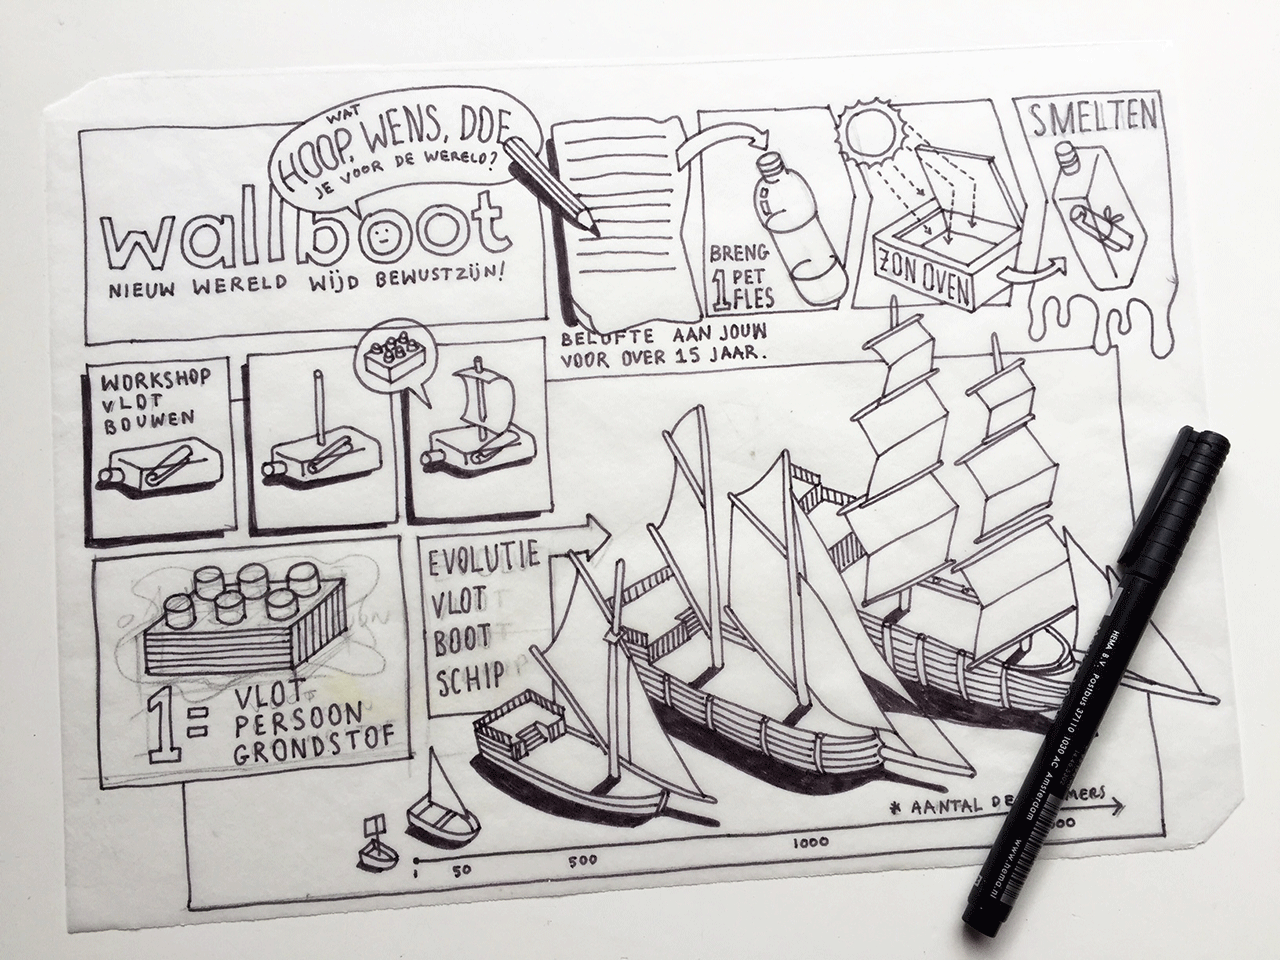 WAT
HOOP, WENS, DOE
JE VOOR DE WERELD?
wallboot
NIEUW WERELD WIJD BEWUSTZIJN!
BELOFTE AAN JOUW
VOOR OVER 15 JAAR.
BRENG
1 PET
FLES
ZON OVEN
SMELTEN
WORKSHOP
VLOT
BOUWEN
1 = VLOT
PERSOON
GRONDSTOF
EVOLUTIE
VLOT
BOOT
SCHIP
* AANTAL
1 50 500 1000
HEMA B.V. Postbus 37110 1030 AC Amsterdam www.hema.nl